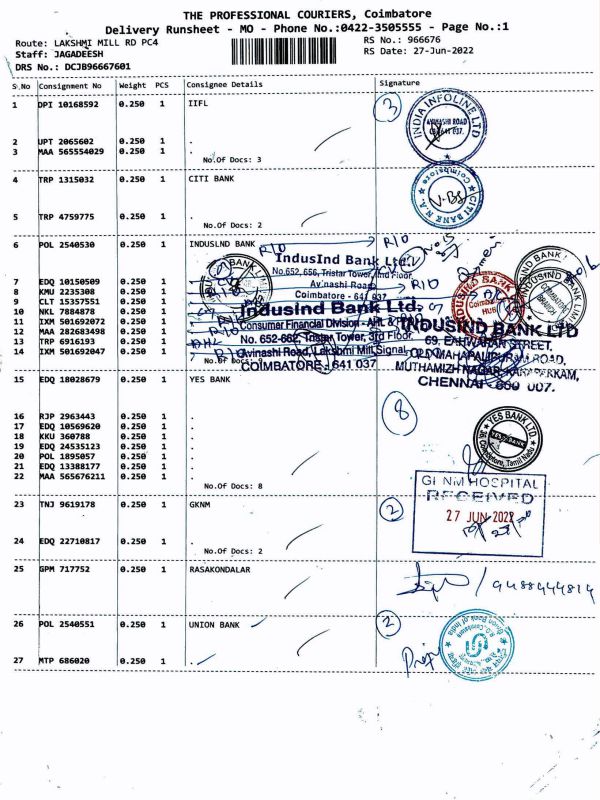 THE PROFESSIONAL COURIERS, Coimbatore
Delivery Runsheet - MO - Phone No.:0422-3505555 - Page No.:1
Route: LAKSHMI MILL RD PC4
RS No.: 966676
Staff: JAGADEESH
RS Date: 27-Jun-2022
DRS No.: DCJB96667601
S.No Consignment No Weight PCS Consignee Details Signature
1 DPI 10168592 0.250 1 IIFL
3
INDIA INFOLINE LTD
AVINASHI ROAD
2 UPT 2065602 0.250 1 .
3 MAA 565554029 0.250 1 .
No.Of Docs: 3
4 TRP 1315032 0.250 1 CITI BANK
Coimbatore
CITI BANK N.A.
5 TRP 4759775 0.250 1 .
No.Of Docs: 2
6 POL 2540530 0.250 1 INDUSLND BANK
R/O R/O
IndusInd Bank Ltd.,
No.652,656, Tristar Tower, IInd Floor,
Avinashi Road
Coimbatore - 641 037
7 EDQ 10150509 0.250 1
R/O
8 KMU 2235308 0.250 1
9 CLT 15357551 0.250 1
10 NKL 7884878 0.250 1
11 IXM 501692072 0.250 1
12 MAA 282683498 0.250 1
13 TRP 6916193 0.250 1
14 IXM 501692047 0.250 1
No.Of Docs: 9
INDUSIND BANK
Coimbatore
HUB
INDUSIND BANK LTD
COIMBATORE
BRANCH
IndusInd Bank Ltd.
Consumer Financial Division - AHL &
No. 652-662, Tristar Tower, 3rd Floor,
Avinashi Road, Lakshmi Mill Signal,
COIMBATORE - 641 037
INDUSIND BANK LTD
OLD MAHAPALIPURAM ROAD,
CHENNAI - 600 007.
15 EDQ 18028679 0.250 1 YES BANK
8
YES BANK LTD
YES BANK
Coimbatore, Tamil Nadu
16 RJP 2963443 0.250 1 .
17 EDQ 10569620 0.250 1 .
18 KKU 360788 0.250 1 .
19 EDQ 24535123 0.250 1 .
20 POL 1895057 0.250 1 .
21 EDQ 13388177 0.250 1 .
22 MAA 565676211 0.250 1 .
No.Of Docs: 8
23 TNJ 9619178 0.250 1 GKNM
2
HOSPITAL
RECEIVED
27 JUN 2022
24 EDQ 22710817 0.250 1 .
No.Of Docs: 2
25 GPM 717752 0.250 1 RASAKONDALAR
26 POL 2540551 0.250 1 UNION BANK
2
27 MTP 686020 0.250 1 .